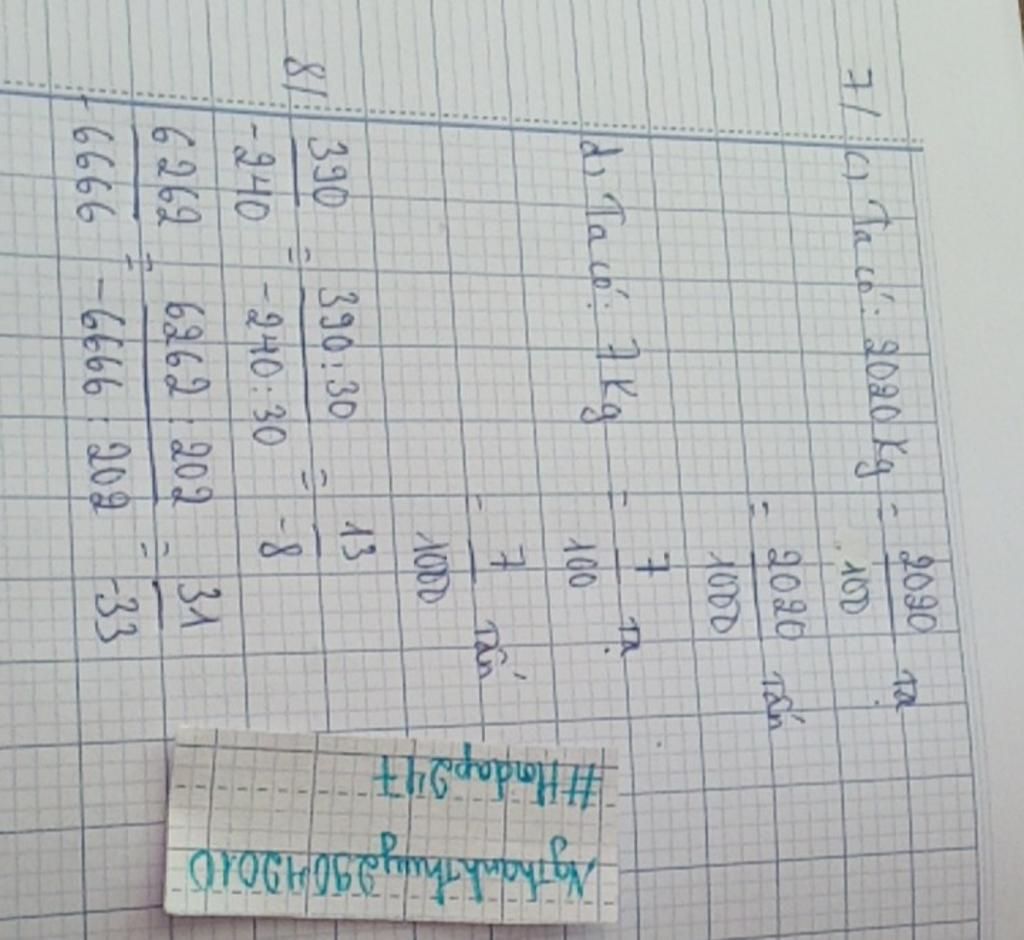 7/ c) Ta có: 2020 kg = 2020/100 tạ
= 2020/1000 tấn
d) Ta có: 7 kg = 7/100 tạ
= 7/1000 tấn
8/ 390/-240 = 390:30/-240:30 = 13/-8
6262/-6666 = 6262:202/-6666:202 = 31/-33
#Hoidap247
Ngthanhthuy29042010